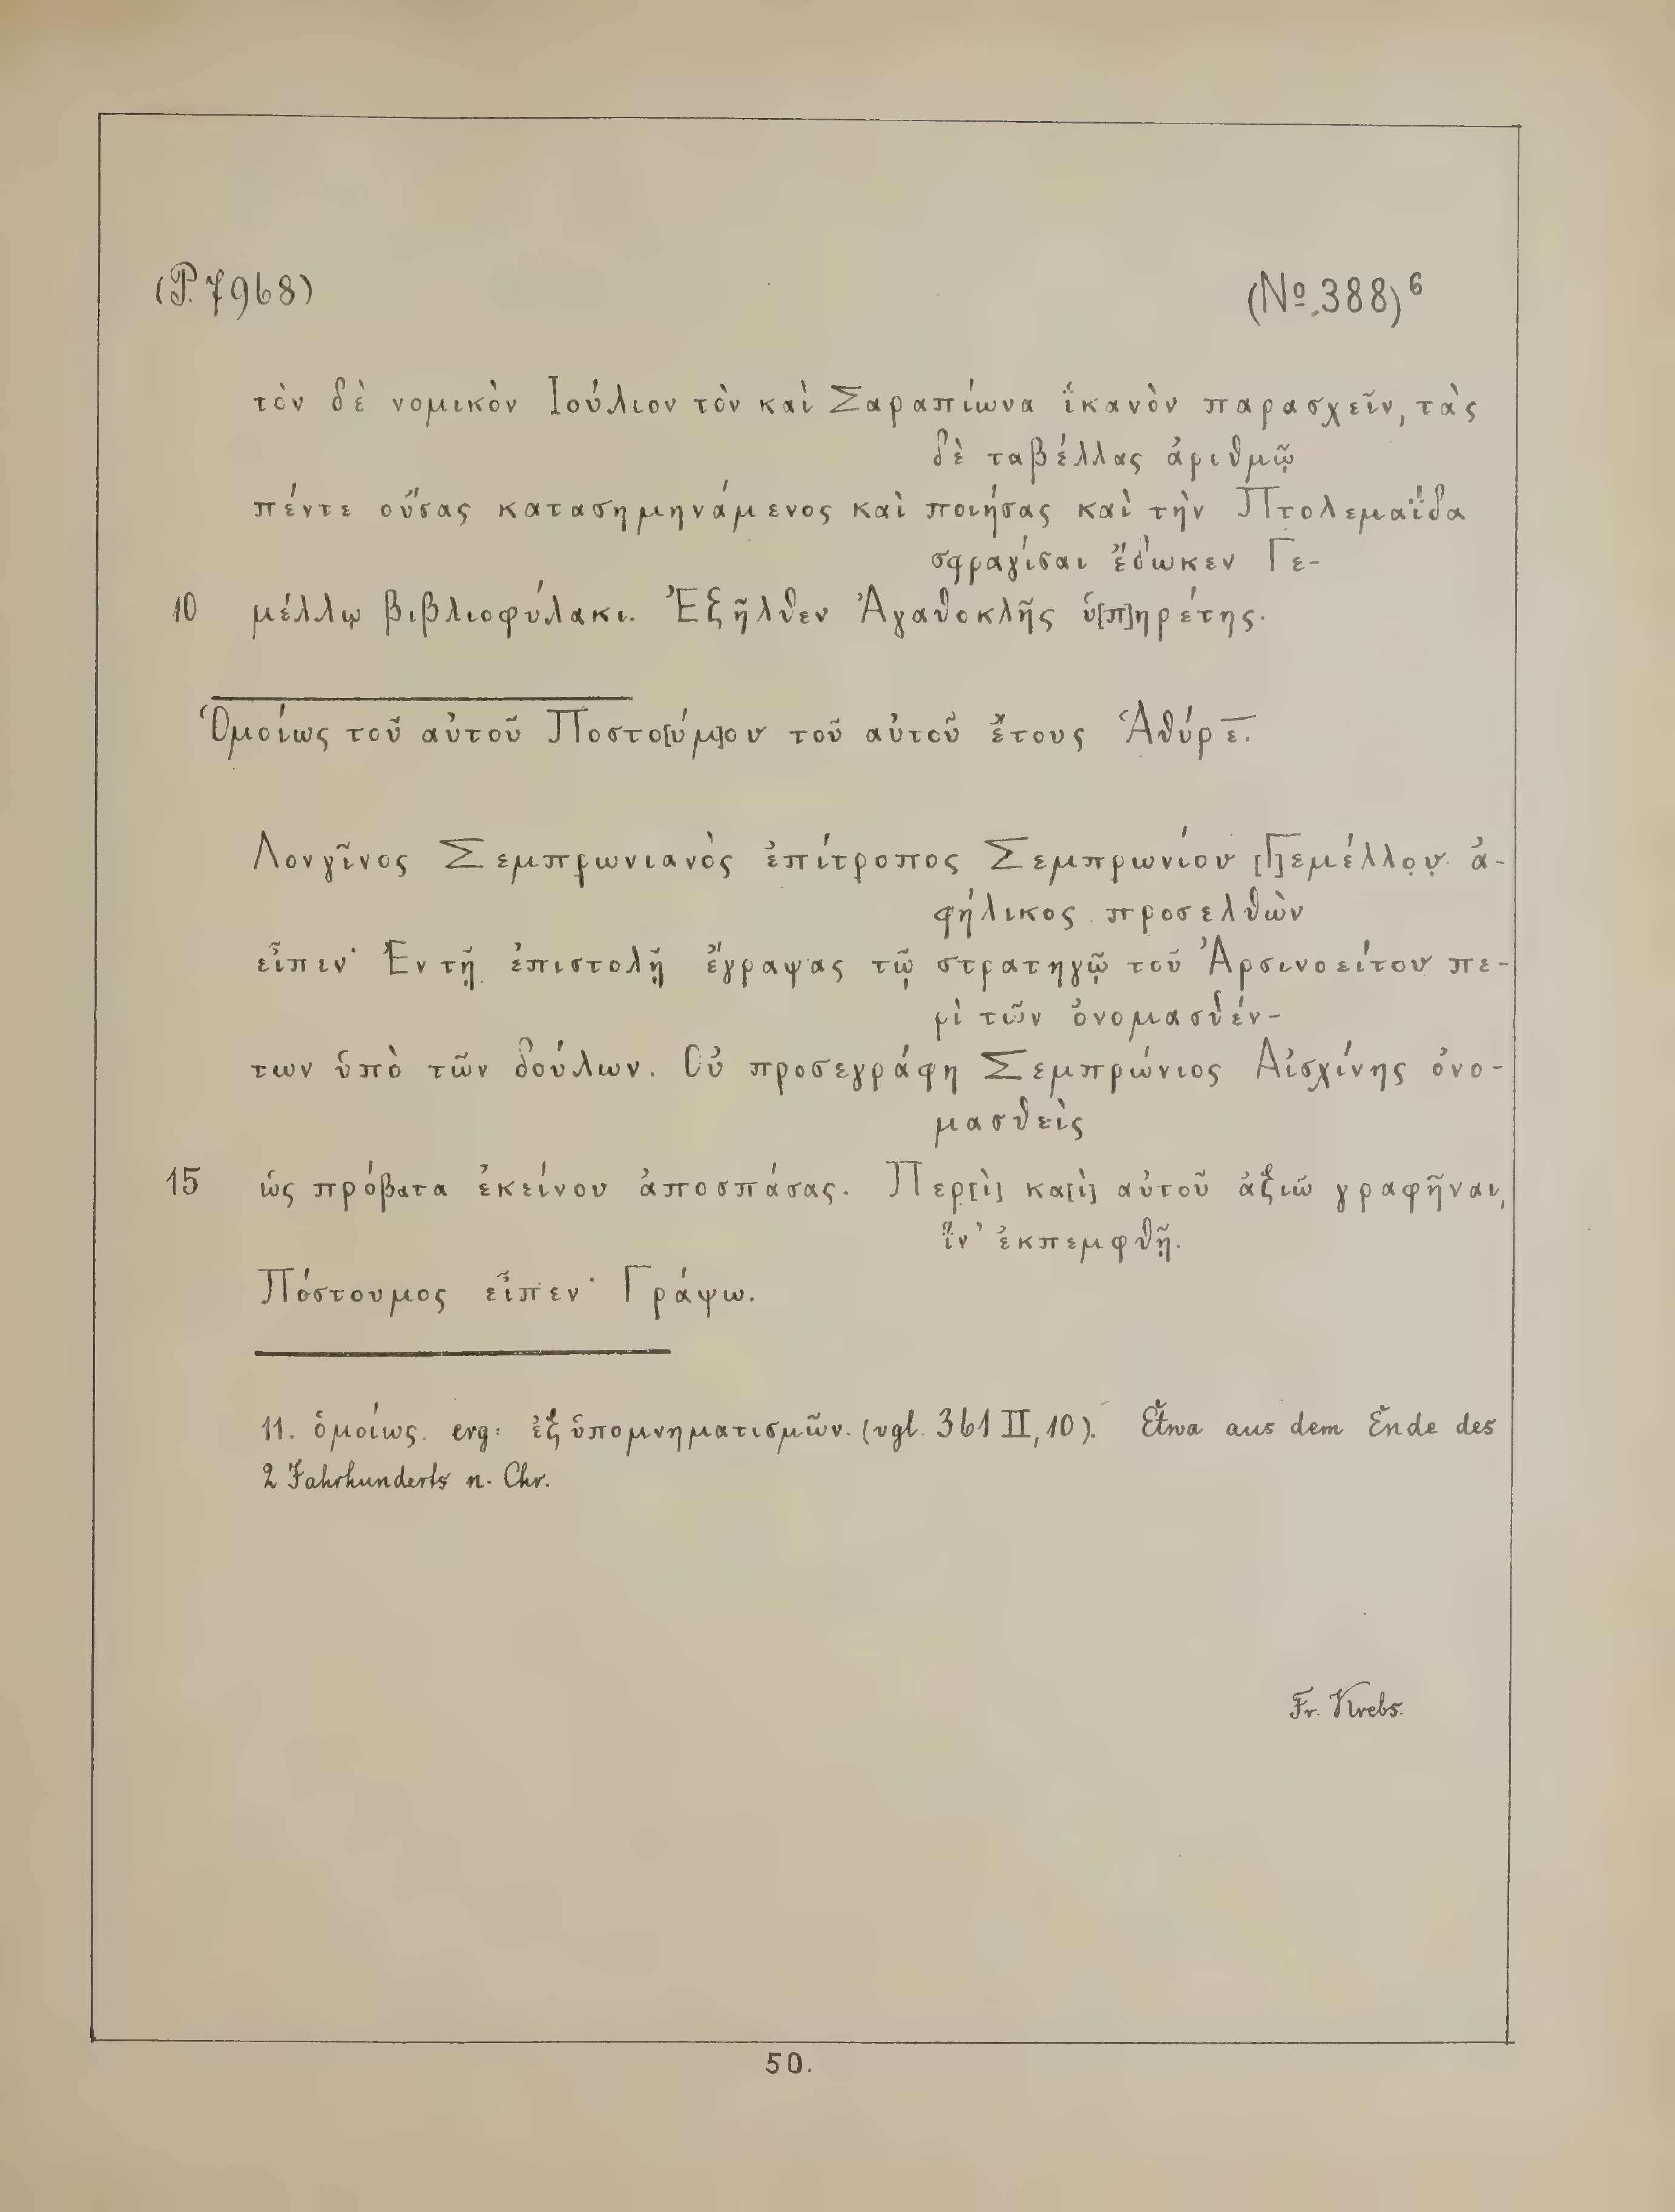 (P. 7968)
(No. 388)⁶
τὸν δὲ νομικὸν Ἰούλιον τὸν καὶ Σαραπίωνα ἱκανὸν παρασχεῖν, τὰς
δὲ ταβέλλας ἀριθμῷ
πέντε οὔσας κατασημηνάμενος καὶ ποιήσας καὶ τὴν Πτολεμαΐδα
σφραγίσαι ἔδωκεν Γε-
10 μέλλῳ βιβλιοφύλακι. Ἐξῆλθεν Ἀγαθοκλῆς ὑ[π]ηρέτης.
Ὁμοίως τοῦ αὐτοῦ Ποστο[ύμ]ου τοῦ αὐτοῦ ἔτους Ἁθύρ ε̅.
Λονγῖνος Σεμπρωνιανὸς ἐπίτροπος Σεμπρωνίου [Γ]εμέλλο̣υ̣ ἀ-
φήλικος προσελθὼν
εἶπεν· Ἐν τῇ ἐπιστολῇ ἔγραψας τῷ στρατηγῷ τοῦ Ἀρσινοείτου πε-
ρὶ τῶν ὀνομασθέν-
των ὑπὸ τῶν δούλων. Οὐ προσεγράφη Σεμπρώνιος Αἰσχίνης ὀνο-
μασθεὶς
15 ὡς πρόβατα ἐκείνου ἀποσπάσας. Περ[ὶ] κα[ὶ] αὐτοῦ ἀξιῶ γραφῆναι,
ἵν' ἐκπεμφθῇ.
Πόστουμος εἶπεν· Γράψω.
11. ὁμοίως. erg: ἐξ ὑπομνηματισμῶν. (vgl. 361 II, 10). Etwa aus dem Ende des
2 Jahrhunderts n. Chr.
Fr. Krebs.
50.